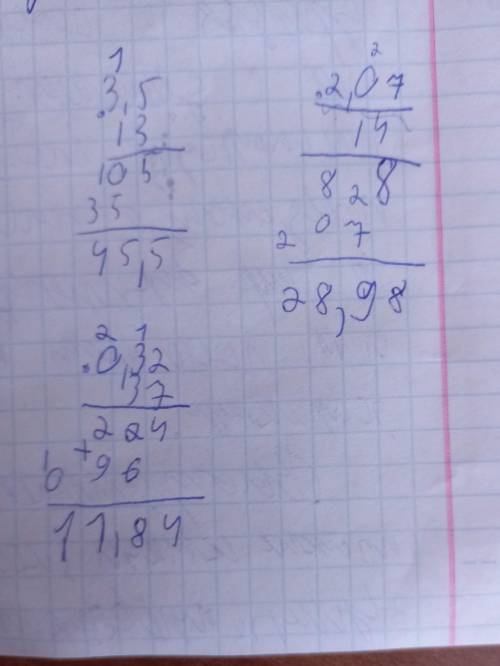 1
.3,5
13
105
35
45,5
2
.2,07
14
828
207
28,98
2 1
.0,32
37
224
1 +
0 96
11,84